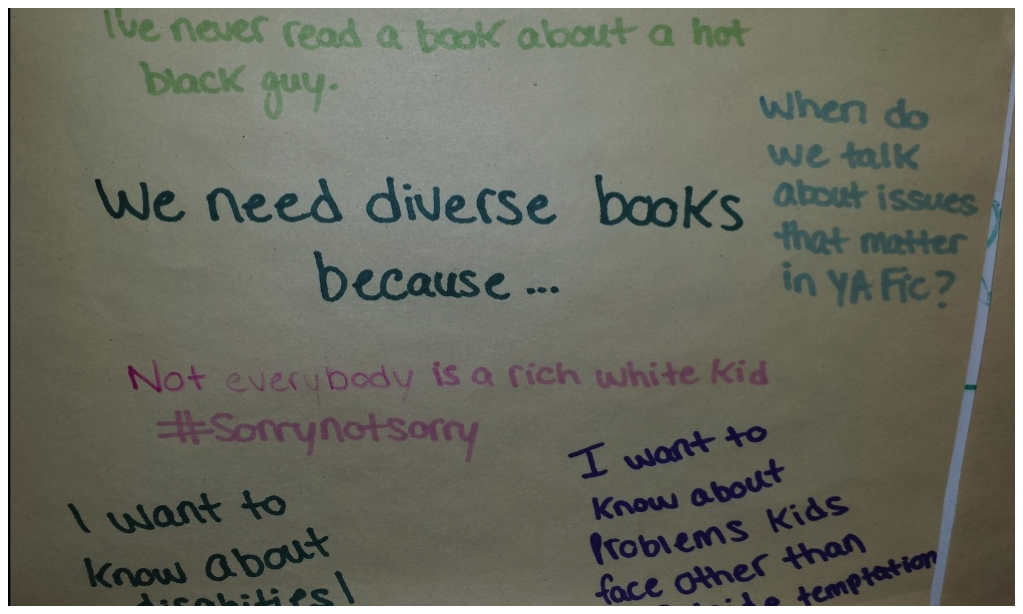 I've never read a book about a hot
black guy.
When do
we talk
about issues
that matter
in YA Fic?
We need diverse books
because...
Not everybody is a rich white kid
#Sorrynotsorry
I want to
know about
disabities!
I want to
know about
Problems kids
face other than
temptation